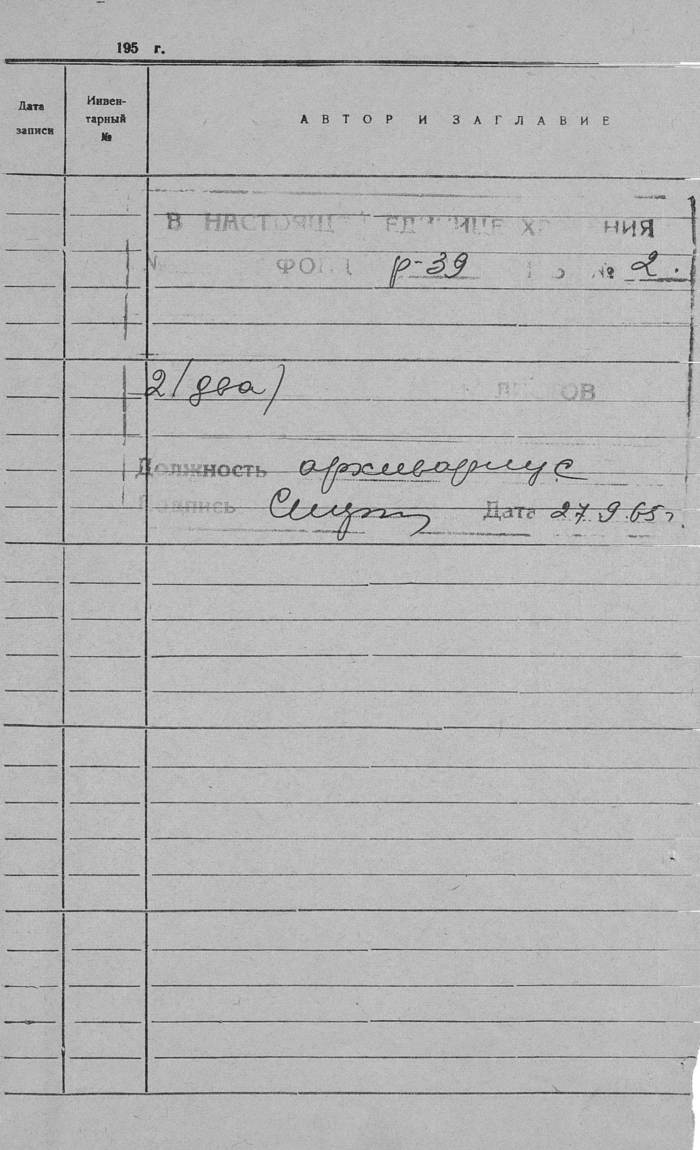 195 г.
Дата записи
Инвен-
тарный
№
АВТОР И ЗАГЛАВИЕ
В НАСТОЯЩЕЙ ЕДИНИЦЕ ХРАНЕНИЯ
ФОНД р-39 № 2.
2 (два) ЛИСТОВ
Должность архивариус
Подпись Дата 27.9.65 г.